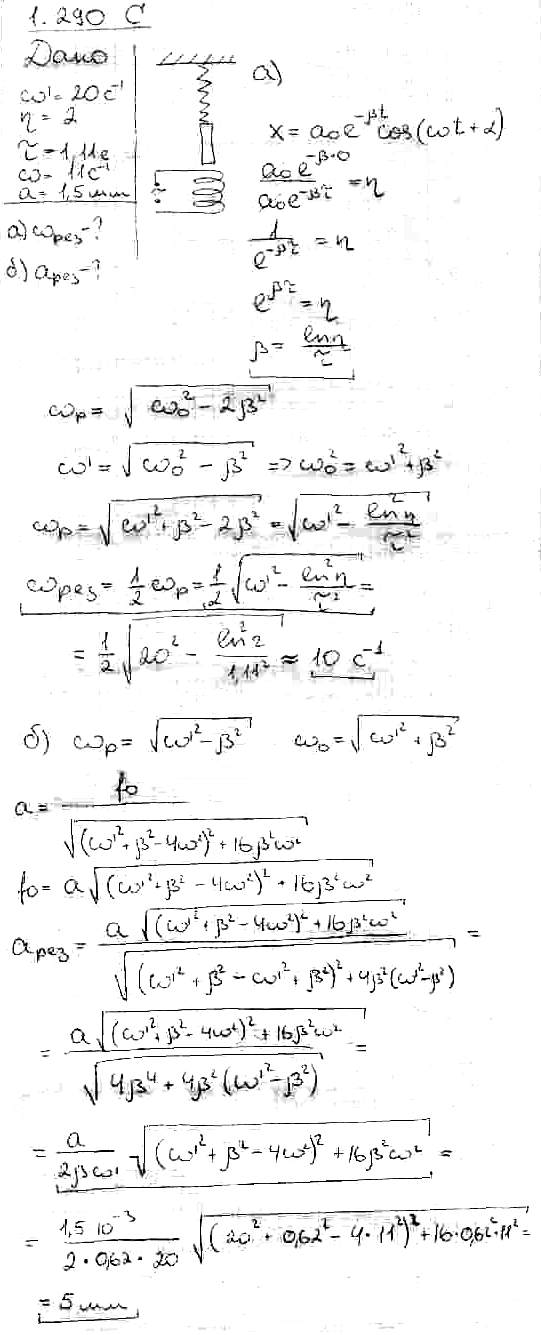 1.290 С
Дано
ω' = 20 с⁻¹
η = 2
τ = 1,11 с
ω = 11 с⁻¹
a = 1,5 мм
а) ωрез - ?
б) aрез - ?
а)
x = a₀e^(-βt) cos(ωt + α)
a₀e^(-β·0) / a₀e^(-βτ) = η
1 / e^(-βτ) = η
e^(βτ) = η
β = ln η / τ
ωp = √(ω₀² - 2β²)
ω' = √(ω₀² - β²) => ω₀² = ω'² + β²
ωp = √(ω'² + β² - 2β²) = √(ω'² - ln²η / τ²)
ωрез = 1/2 ωp = 1/2 √(ω'² - ln²η / τ²) =
= 1/2 √(20² - ln²2 / 1,11²) ≈ 10 с⁻¹
б) ωp = √(ω'² - β²) ω₀ = √(ω'² + β²)
a = f₀ / √((ω'² + β² - 4ω²)² + 16β²ω²)
f₀ = a √((ω'² + β² - 4ω²)² + 16β²ω²)
aрез = a √((ω'² + β² - 4ω²)² + 16β²ω²) / √((ω'² + β² - ω'² + β²)² + 4β²(ω'² - β²)) =
= a √((ω'² + β² - 4ω²)² + 16β²ω²) / √(4β⁴ + 4β²(ω'² - β²)) =
= a / 2βω' √((ω'² + β² - 4ω²)² + 16β²ω²) =
= 1,5 10⁻³ / 2·0,62·20 √((20² + 0,62² - 4·11²)² + 16·0,62²·11²) =
= 5 мм